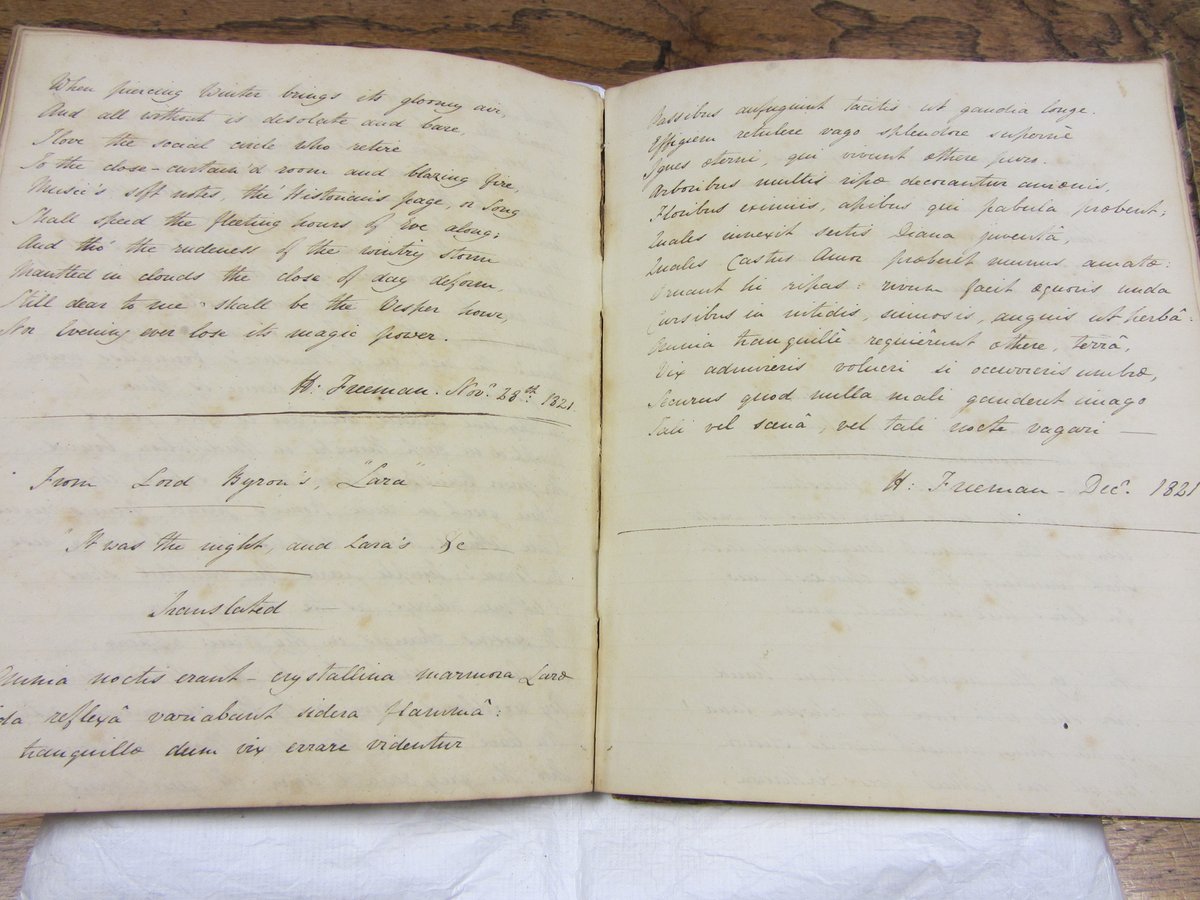 When piercing Winter brings its gloomy air,
And all without is desolate and bare,
I love the social circle who retire
To the close-curtain'd room and blazing fire,
Music's soft notes, the Historian's page, or Song
Shall speed the fleeting hours of Eve along;
And tho' the rudeness of the wintry storm
Mantled in clouds the close of day deform,
Still dear to me shall be the Vesper hour,
Nor Evening ever lose its magic power.
H: Freeman. Novr. 28th: 1821.
From Lord Byron's, "Lara"
"It was the night, and Lara's &c
Translated
Omnia noctis erant - crystallina marmora Laræ
reflexâ variabant sidera flammâ:
tranquillæ dum vix errare videntur
Passibus aufugiunt tacitis ut gaudia longe.
Effigiem retulere vago splendore supernè
Ignes æterni, qui vivunt æthere puro.
Arboribus multis ripæ decorantur amœnis,
Floribus eximiis, apibus qui pabula præbent;
Quales innexit sertis Diana juventâ,
Quales Castus Amor præberit munus amatæ:
Ornant hi ripas: rivum facit æquoris unda
Cursibus in nitidis, sinuosis, anguis ut herbâ.
Omnia tranquillè requiêrunt æthere, terrâ,
Vix admireris volucri si occurreris umbræ,
Securus quod nulla mali gaudent imago
Tali vel scenâ, vel tali nocte vagari —
H: Freeman - Decr. 1821